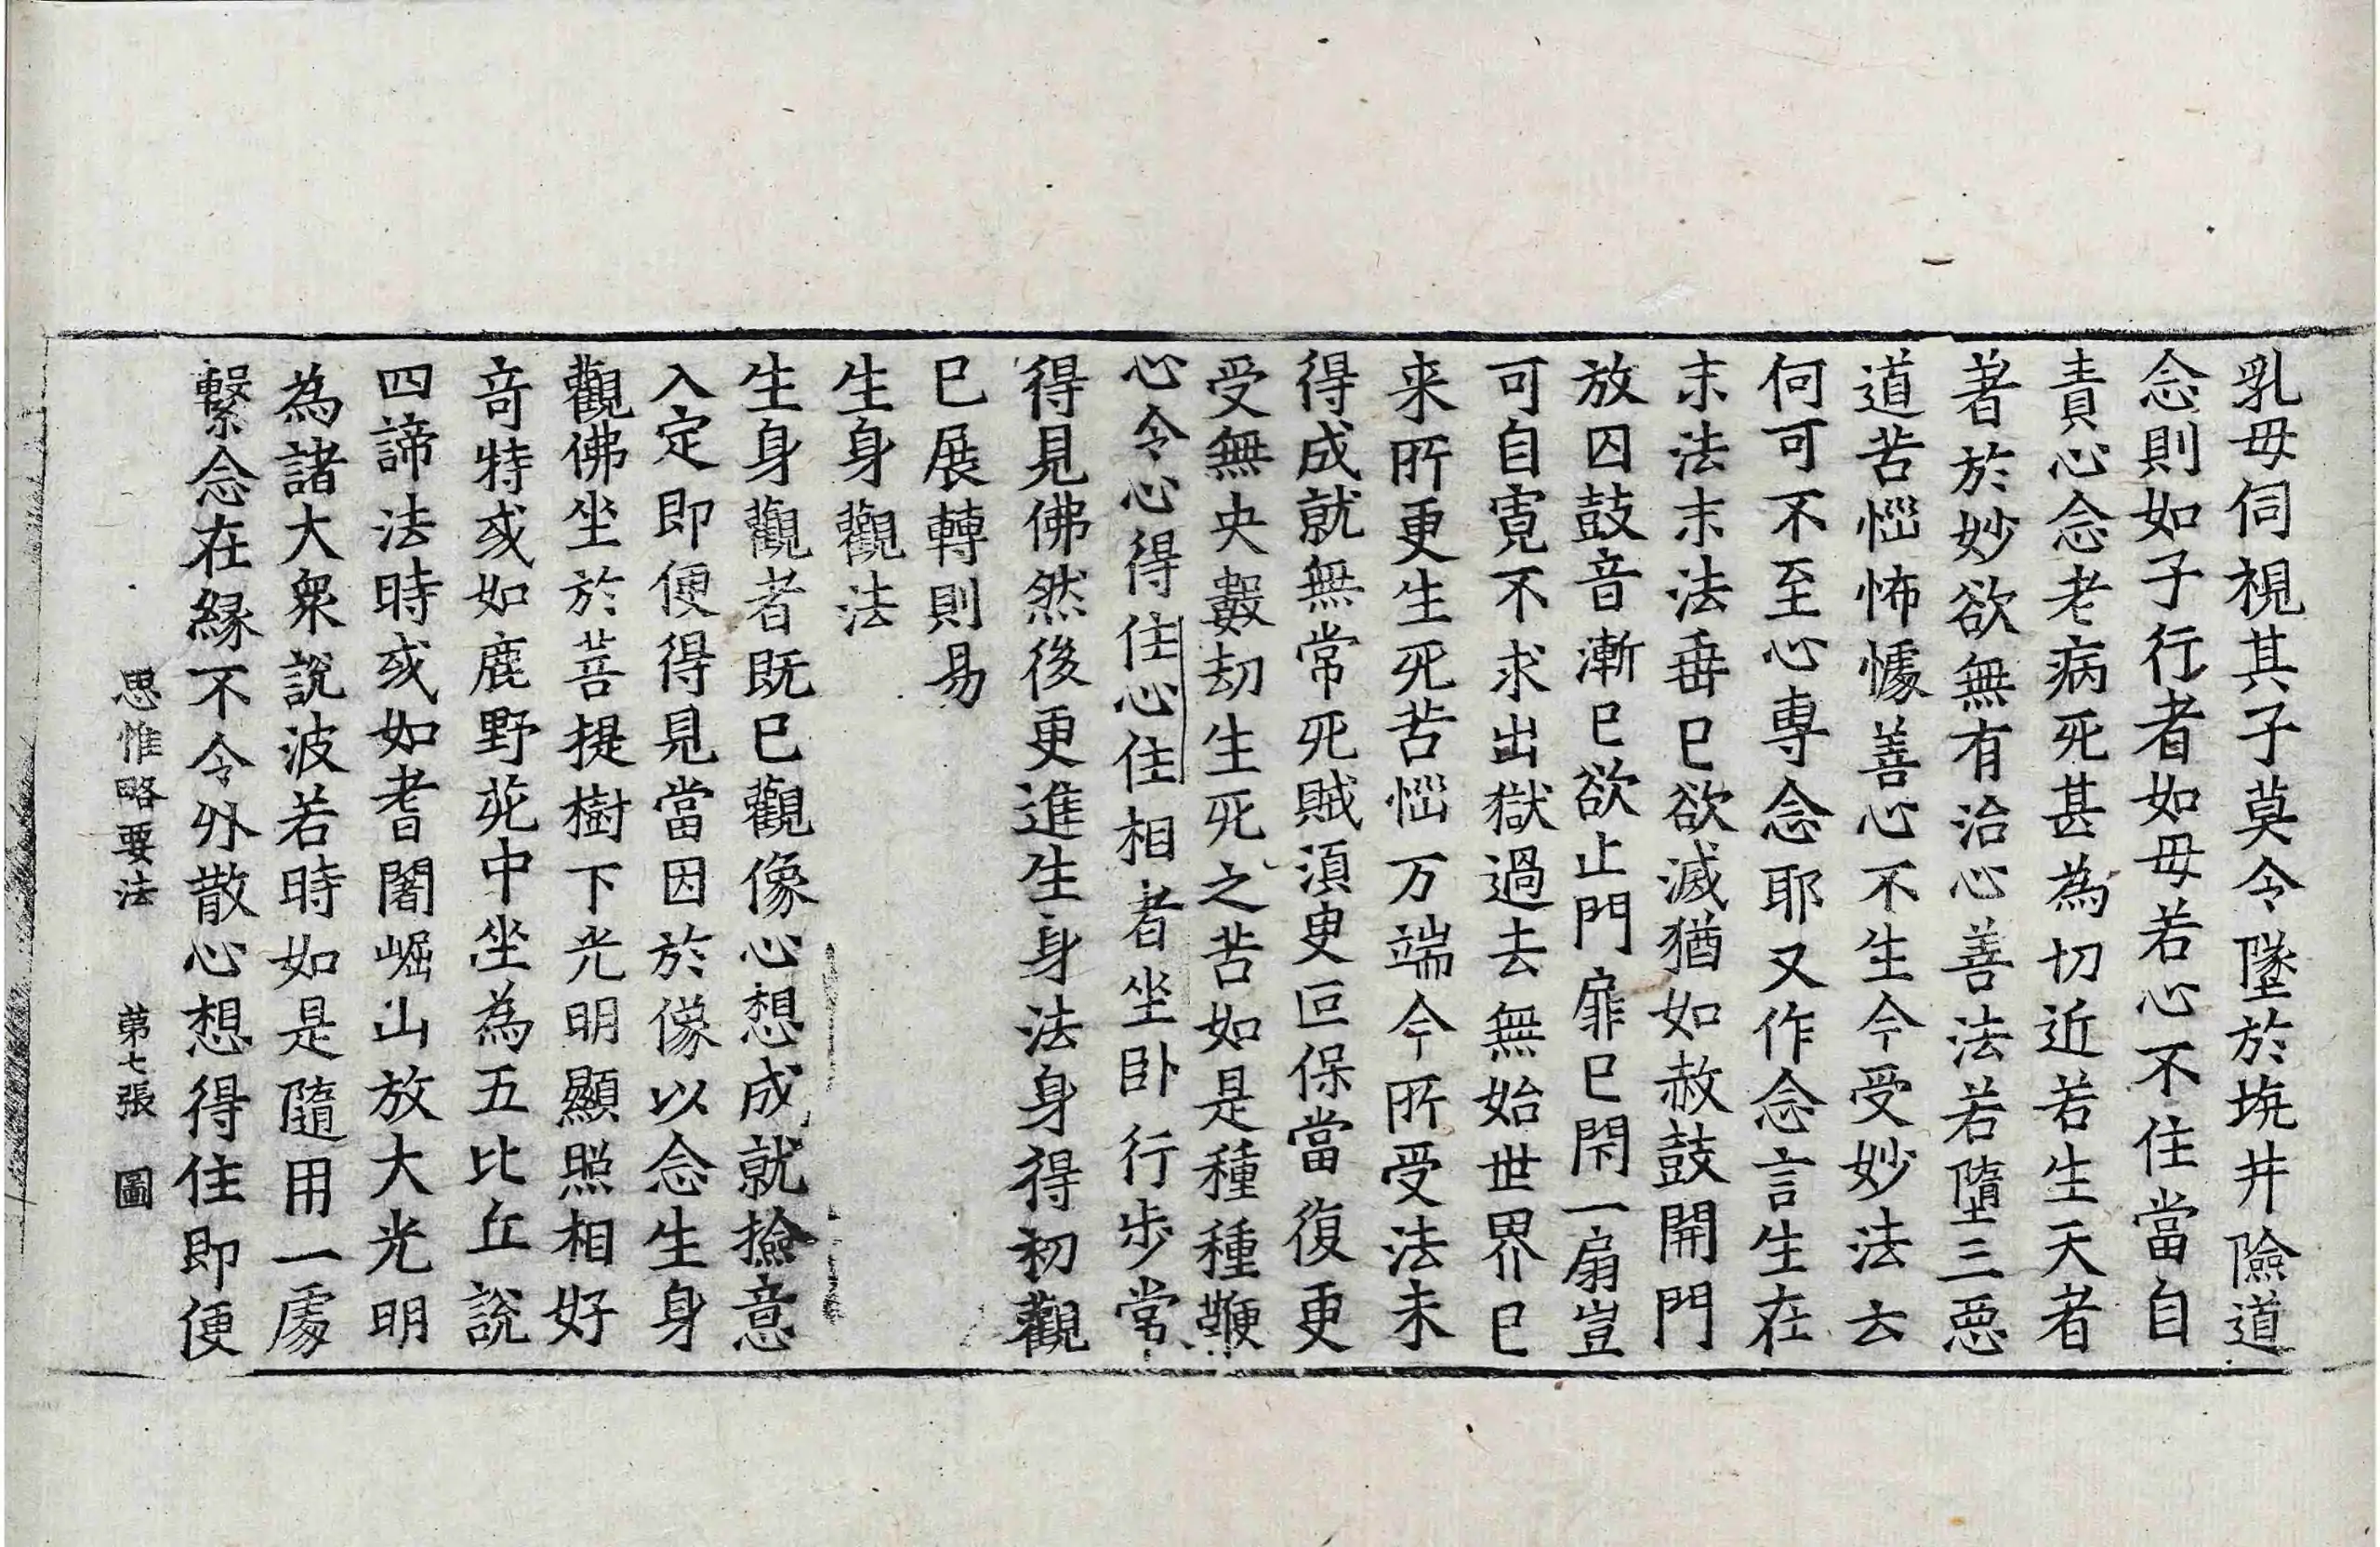 乳母伺視其子莫令墜於坑井險道
念則如子行者如母若心不住當自
責心念老病死甚為切近若生天者
著於妙欲無有治心善法若墮三惡
道苦惱怖懅善心不生今受妙法云
何可不至心專念耶又作念言生在
末法末法垂已欲滅猶如赦鼓開門
放囚鼓音漸已欲止門扉已閇一扇豈
可自寬不求出獄過去無始世界已
来所更生死苦惱万端今所受法未
得成就無常死賊須臾叵保當復更
受無央數劫生死之苦如是種種鞭
心令心得住心住相者坐卧行步常
得見佛然後更進生身法身得初觀
已展轉則易
生身觀法
生身觀者既已觀像心想成就撿意
入定即便得見當因於像以念生身
觀佛坐於菩提樹下光明顯照相好
奇特或如鹿野苑中坐為五比丘說
四諦法時或如耆闍崛山放大光明
為諸大衆說波若時如是隨用一處
繫念在緣不令外散心想得住即便
思惟略要法 第七張 圖